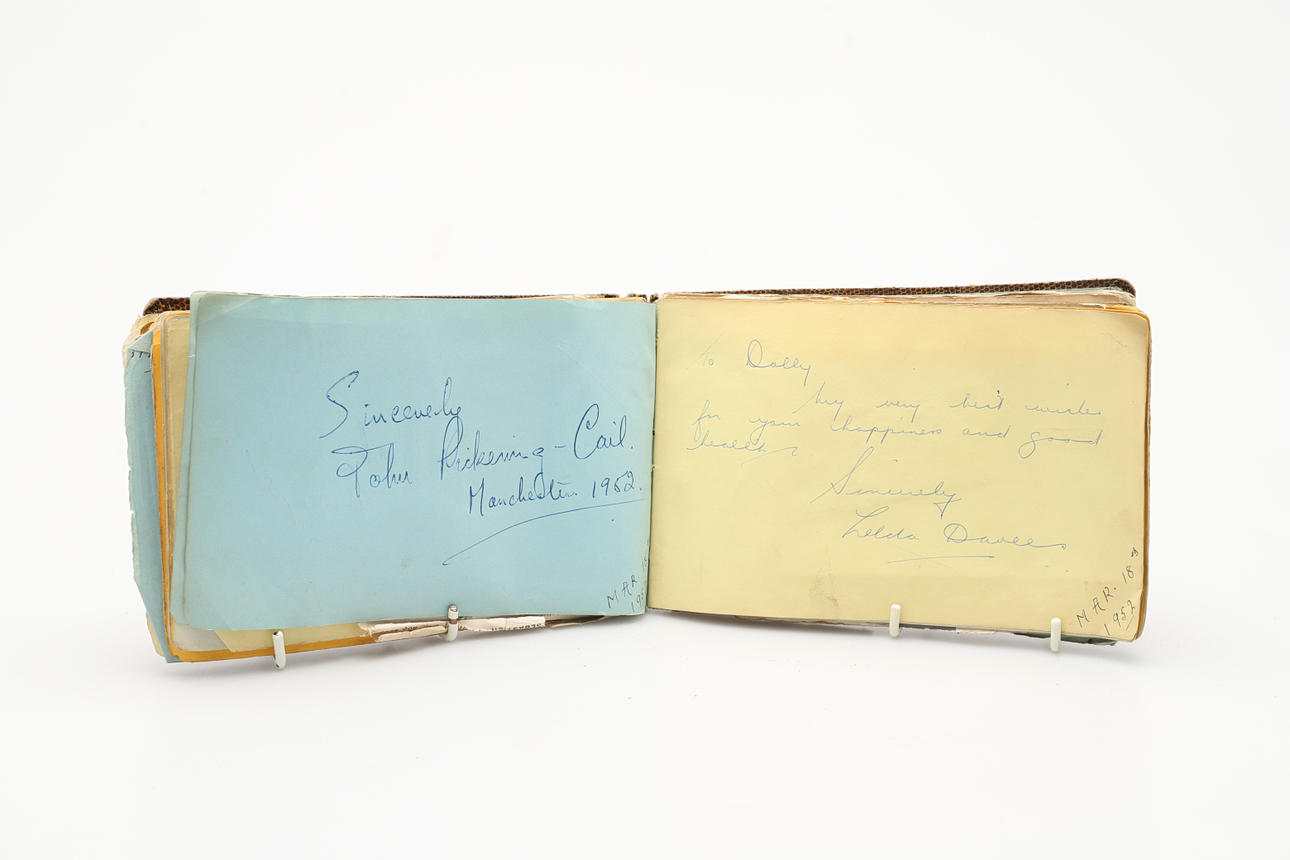 Sincerely
John Pickering-Cail.
Manchester. 1952.
MAR. 18
195
To Dolly
My very best wishes
for your happiness and good
health
Sincerely
Zelda Davees
MAR. 18
1952